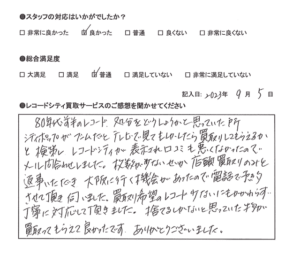 ●スタッフの対応はいかがでしたか?
□ 非常に良かった ☑ 良かった □ 普通 □ 良くない □ 非常に良くない
●総合満足度
□ 大満足 □ 満足 ☑ 普通 □ 満足していない □ 非常に満足していない
記入日: 2023年 9月 5日
●レコードシティ買取サービスのご感想を聞かせてください
80年代後半のレコード 処分をどうしようかと思っていた所
シティポップがブームだとテレビで見てもしかしたら買取りしてもらえるか
と検索しレコードシティが表示され口コミも悪くなかったので
メール問合わせしました。枚数が少ないせいか店頭買取りのみと
返事いただき 大阪に行く機会があったので電話で予約
させて頂き伺いました。買取り希望のレコード少ないにもかかわらず
丁寧に対応して頂きました。捨てるしかないと思っていた物が
買取ってもらえて良かったです。ありがとうございました。